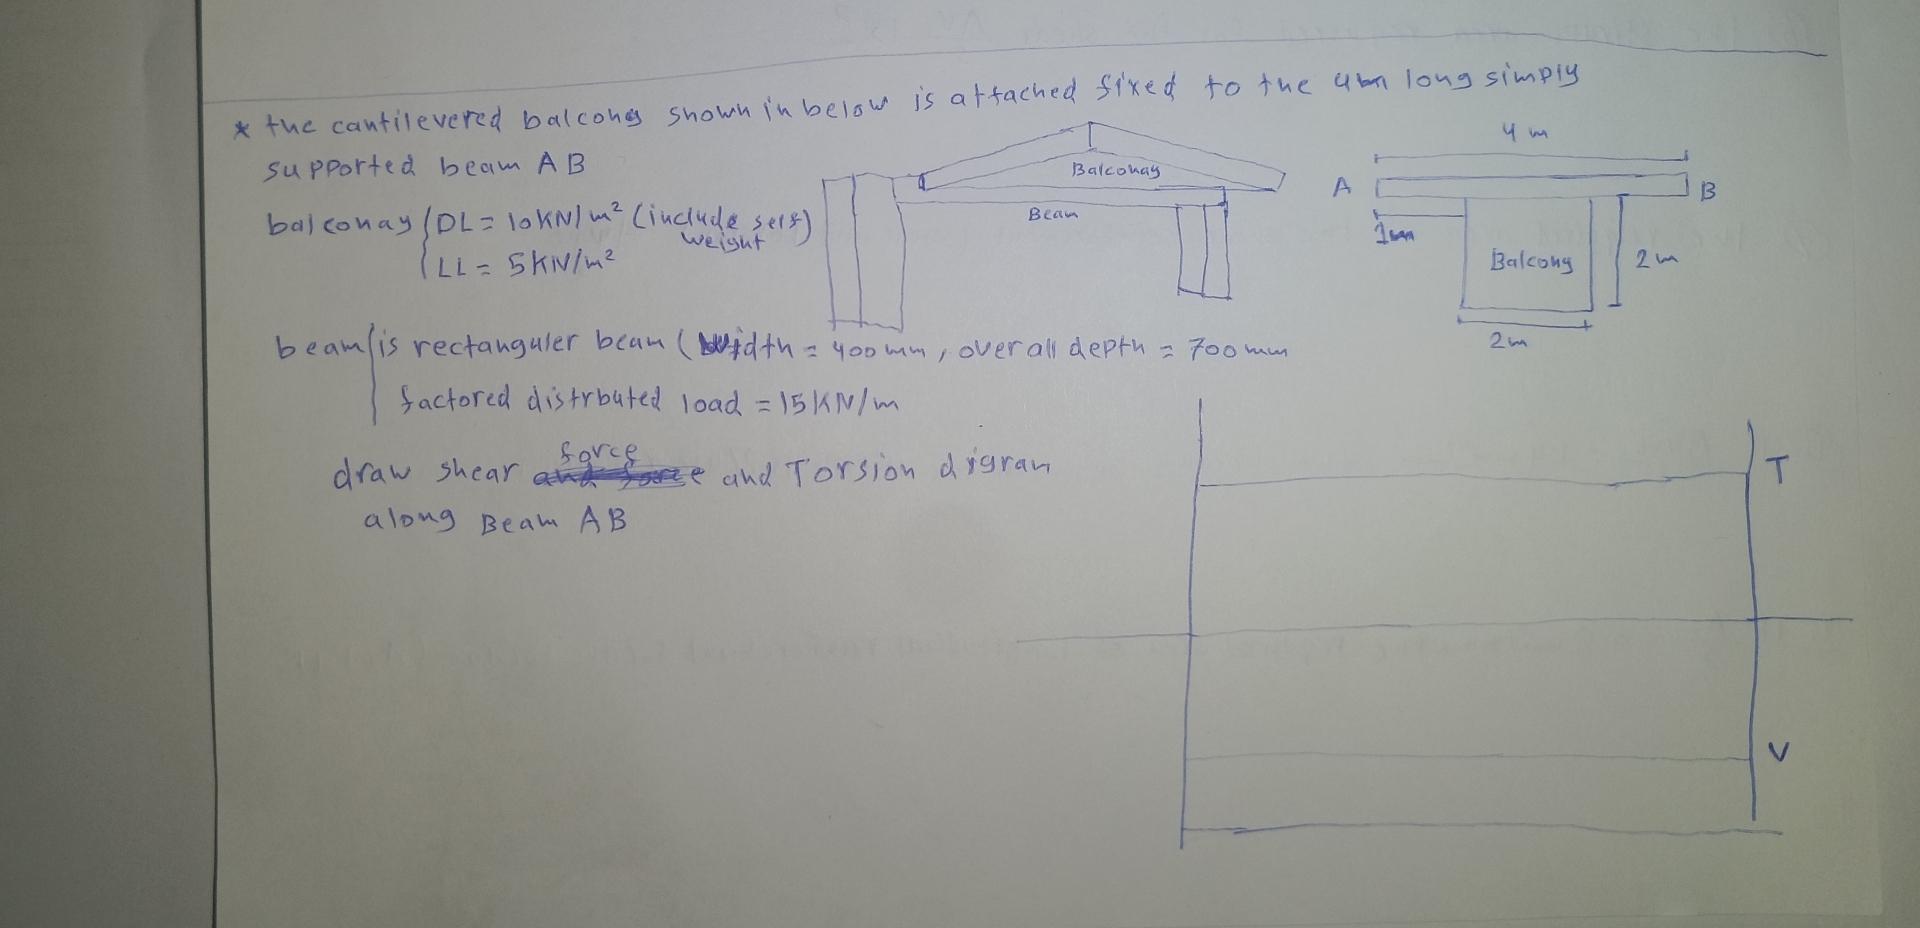 * the cantilevered balcony shown in below is attached fixed to the 4m long simply
supported beam AB
balconay DL = 10 KN/m² (include self weight)
LL = 5 KN/m²
Balconay
Beam
4 m
A
B
1m
Balcony
2 m
2m
beam is rectanguler beam ( Width = 400 mm , over all depth = 700 mm
factored distrbuted load = 15 KN/m
draw shear force and Torsion digram
along Beam AB
T
V